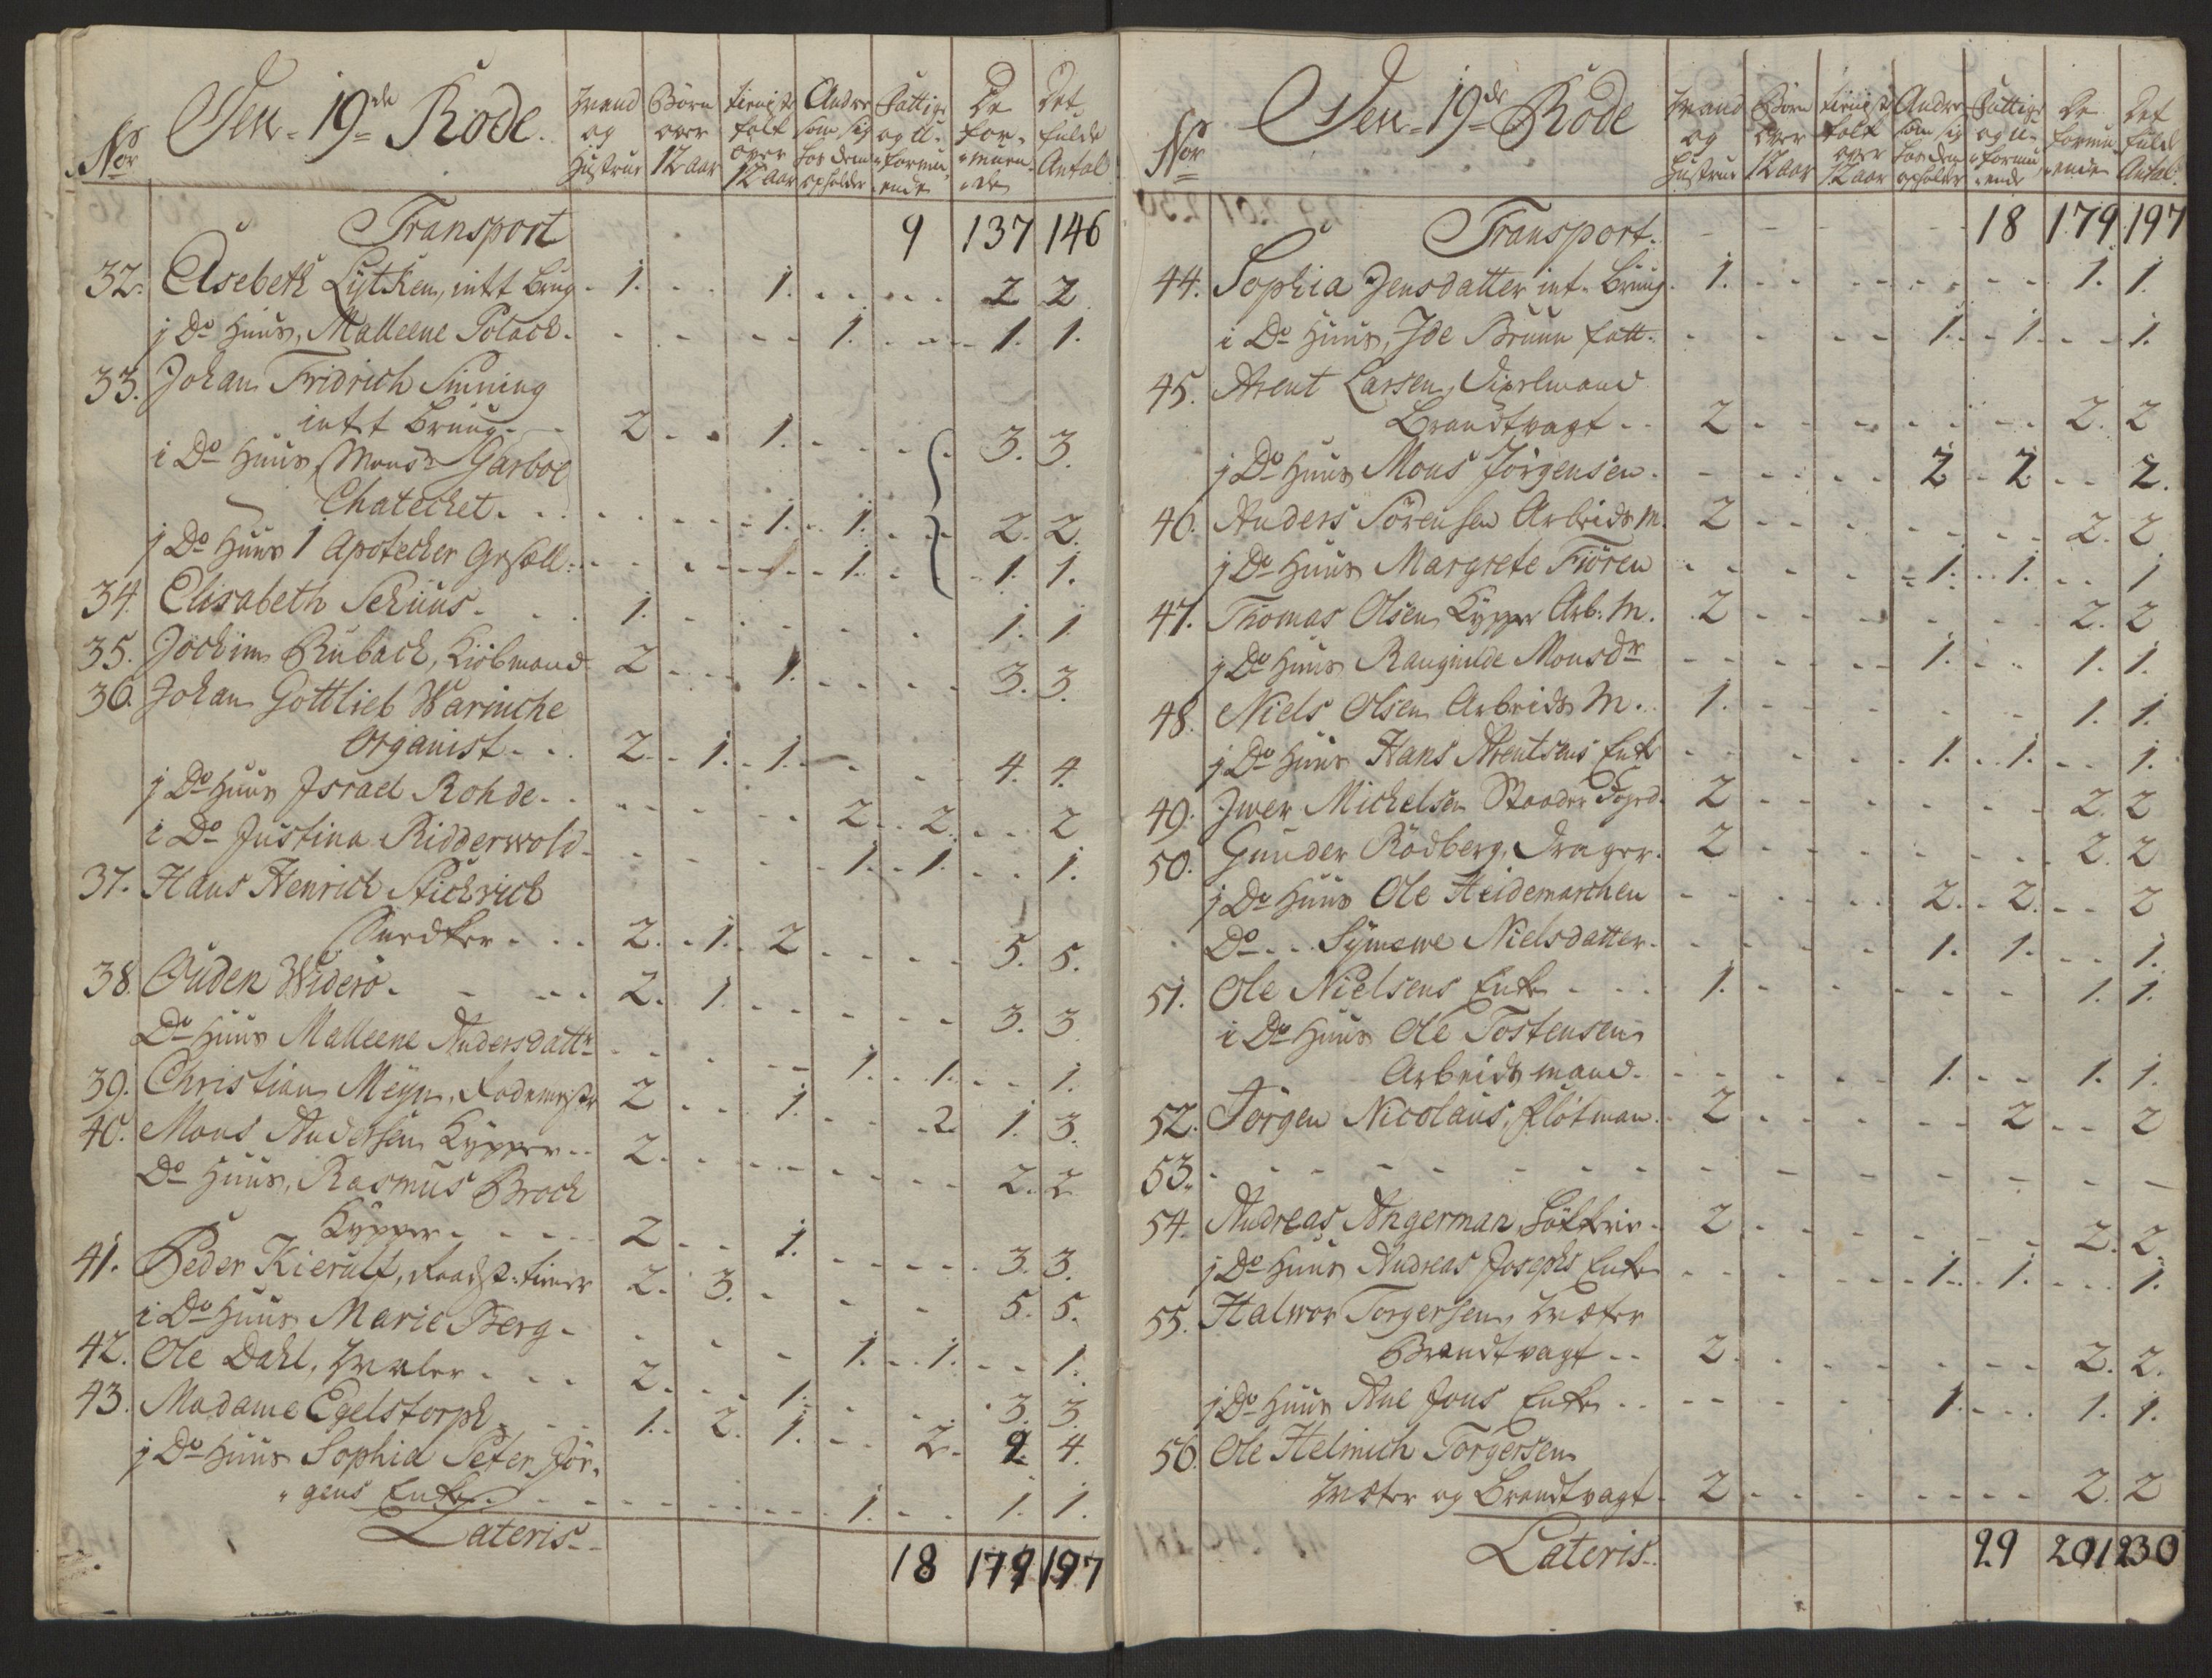 Den 19de Rode.
Nor
Mand og Hustrue
Börn over 12 aar
tieniste folk over 12 aar
Andre som sig hos dem opholder
Fattige og u-formu-ende
De for-muen-de
Det fulde Antal
Transport 9 137 146
32. Elsebeth Lytken, intet Brug - 1. - - 1. - - - - 2 2
j Do Huus, Malleene Polack. - - - - 1. - - - 1. 1.
33. Johan Fridrich Sinning
intet Bruug. - 2 - - 1. - - - 3. 3.
i Do Huus, Mons. Garboe
Chatechet. - - - - - 1. - 1. - - 2. 2.
j Do Huus 1 Apotecker Gesell. - - - - - 1. - - 1. 1.
34. Elisabeth Schiius. - - 1. - - - - - 1. 1
35. Jochim Rubach, Kiöbmand 2 - - 1. - - - 3. 3.
36. Johan Gottlieb Warniche
Organist. - - 2. - 1. - 1. - - - 4. 4.
j Do Huus Israel Rohde. - - - - - 2. - 2. - - - 2
i Do Justina Ridderwold - - - - - 1. - 1. - - 1.
37. Hans Henrich Stichrich
Snedker. - - 2. - 1. 2 - - - - 5. 5.
38. Ouden Widerö. - - - 2. 1. - - - - - 3. 3
Do Huus Malleene Andersdattr - - - - 1. - 1. - - 1.
39. Christian Meyn, Rodemester 2 - - 1. - - 2 1. 3.
40. Mons Andersen Kypper - - 2. - - - - - - - 2. 2
Do Huus, Rasmus Brock
Kypper. - - - - 2 - - 1. - - - - - 3. 3.
41. Peder Kierulf, Raadst. tiener 2. 3. - - - 5. 5.
i Do Huus Marie Berg - - - - 1. - 1. - - 1.
42. Ole Dahl, Maler - - - 2. - - 1. - - 3. 3.
43. Madame Egelstorph - - 1. 2. 1. - - 2. 2. 4.
j Do Huus Sophia Peter Jör-
gens Enke. - - - - - - - 1. - - 1. 1.
Lateris - 18 179 197
Den 19de Rode
Nor
Mand og Hustrue
Börn over 12 aar
tieniste folk over 12 aar
Andre som sig hos dem opholder
Fattige og u-formu-ende
De formu-ende
Det fulde Antal.
Transport. - - - - 18 179 197
44. Sophia Jensdatter int. Bruug. 1. - - - - - - - 1. 1.
i Do Huus, Ide Bruun fatt. - - - - 1. - 1. - - 1.
45. Arent Larsen,
Brandtvagt - - 2 - - - - - - - 2. 2
j Do Huus Mons Jörgensen. - - - - - 2 - 2 - - 2.
46. Anders Sörensen Arbeids M. 2 - - - - - - 2. 2
j Do Huus Margrete Fiören - - - - - 1. - - 1. - - 1
47. Thomas Olsen Kypper Arb: M. 2 - - - - - 2. 2
j Do Huus Rangnilde Monsdr - - - - - 1. - - 1. 1.
48. Niels Olsen Arbeids M. 1. - - - - - 1. 1.
j Do Huus Hans Arentsens Enke - - - - - 1. - 1. - - 1.
49. Iwer Michelsen Stoder Foged. 2 - - - - - - - 2. 2
50. Gunder Rödberg, Drager. 2 - - - - - - - 2. 2
j Do Huus Ole Heidemarchen - - - - - 2. - 2. - - 2
Do - - Symewe Nielsdatter. - - - - 1. 1. - - 1.
51. Ole Nielsens Enke - - - 1. - - - - - 1. 1.
i Do Huus Ole Tostensen
Arbeids mand. - - - - - - 1. - - 1. 1.
52. Jörgen Nicolaus, Flötman. 2 - - - - - 2 - - 2
53. - - - - - - - - - - - - - - -
54. Andreas Angerman, 2 - - - - - - 2. 2.
j Do Huus Andreas Josephs Enke - - - - - 1. - 1. - - - 1.
55. Halwor Torgersen, Mæter
Brandtvagt - - 2. - - - - - - - 2. 2.
j Do Huus Ane Jons Enke - - - - - - - 1. - - - 1. 1.
56. Ole Helmich Torgersen
Mæter og Brandtvagt. 2 - - - - - - - 2. 2
Lateris. - 29 201 230